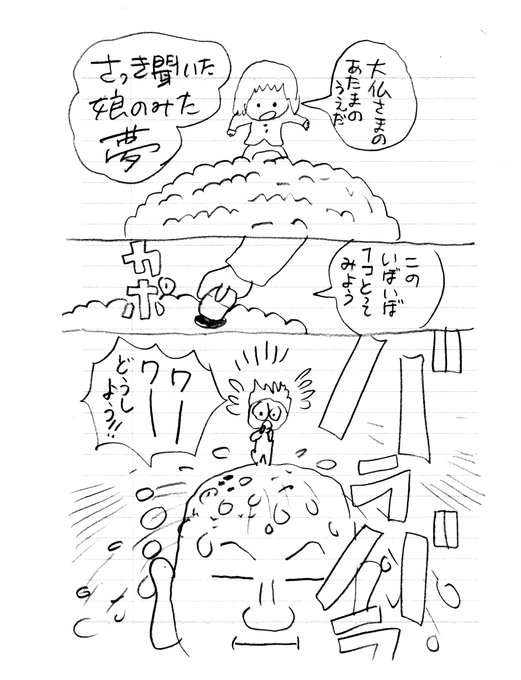 さっき聞いた
娘のみた
夢
大仏さまの
あたまの
うえだ
この
いぼいぼ
1コとって
みよう
カポ
ワー
ワー
どうし
よう!!
ガラガラ